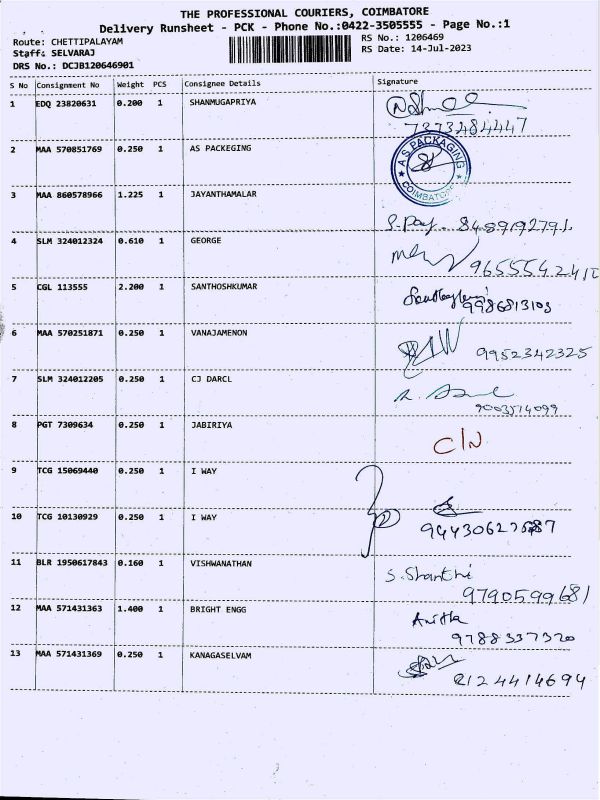 THE PROFESSIONAL COURIERS, COIMBATORE
Delivery Runsheet - PCK - Phone No.:0422-3505555 - Page No.:1
Route: CHETTIPALAYAM
RS No.: 1206469
Staff: SELVARAJ
RS Date: 14-Jul-2023
DRS No.: DCJB120646901
S No Consignment No Weight PCS Consignee Details Signature
1 EDQ 23820631 0.200 1 SHANMUGAPRIYA
7373284447
2 MAA 570851769 0.250 1 AS PACKEGING
A S PACKAGING
COIMBATORE
3 MAA 860578966 1.225 1 JAYANTHAMALAR
8489192791
4 SLM 324012324 0.610 1 GEORGE
9655542412
5 CGL 113555 2.200 1 SANTHOSHKUMAR
9986813103
6 MAA 570251871 0.250 1 VANAJAMENON
9952342325
7 SLM 324012205 0.250 1 CJ DARCL
9003574099
8 PGT 7309634 0.250 1 JABIRIYA
C/N
9 TCG 15069440 0.250 1 I WAY
10 TCG 10130929 0.250 1 I WAY
11 BLR 1950617843 0.160 1 VISHWANATHAN
S. Shanthi
9790599681
12 MAA 571431363 1.400 1 BRIGHT ENGG
Anitha
9788337320
13 MAA 571431369 0.250 1 KANAGASELVAM
8124414694